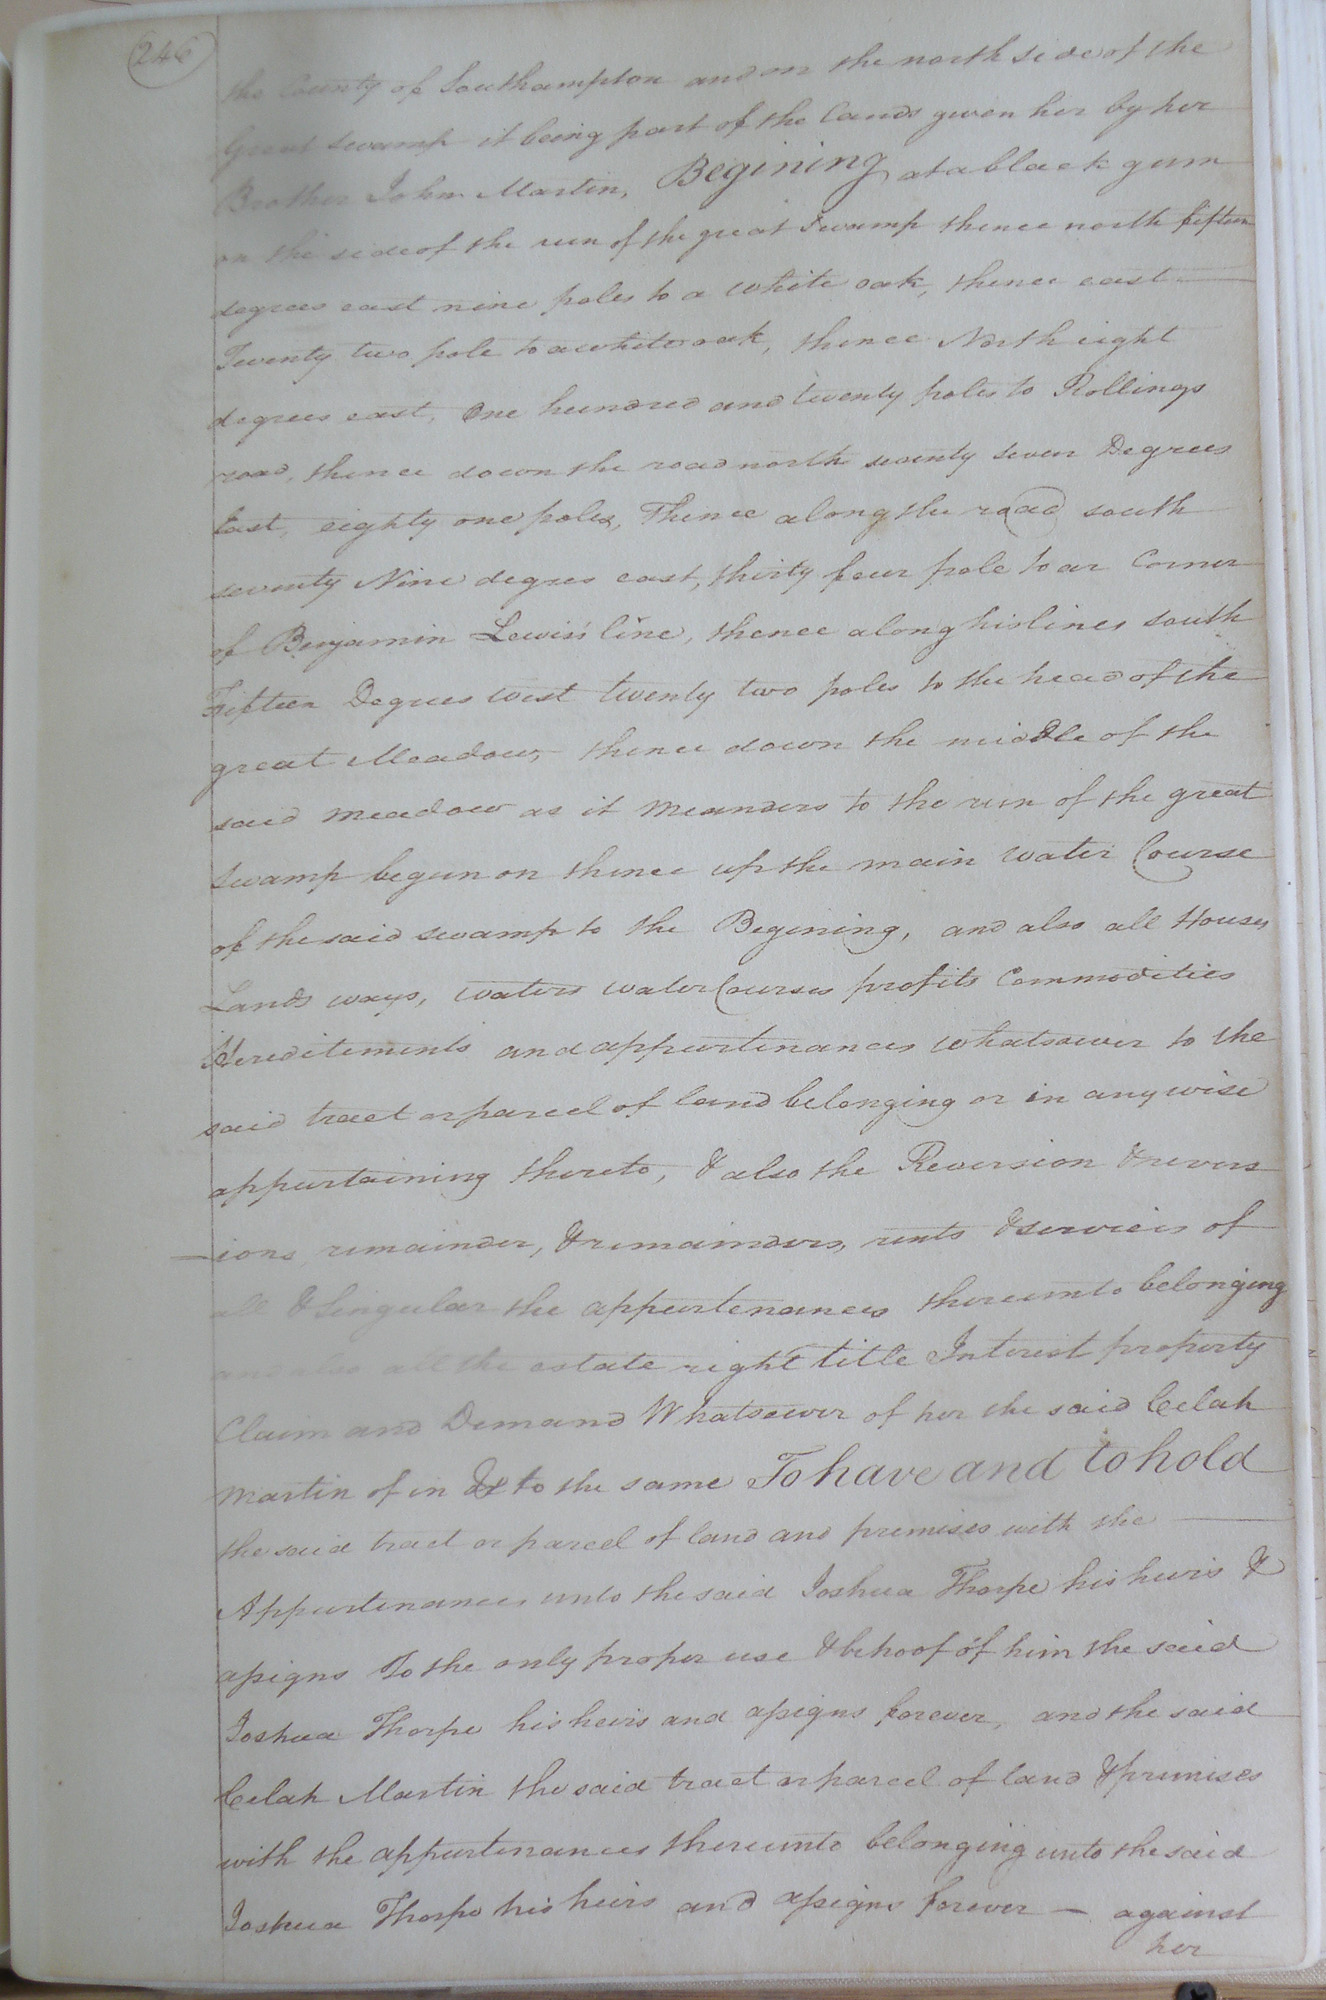 246
the County of Southampton and on the north side of the
Great Swamp it being part of the lands given her by her
Brother John Martin, Begining at a black gum
on the side of the run of the great Swamp thence north fifteen
degrees east nine poles to a white oak, thence east
Twenty two pole to a white oak, thence North eight
degrees east, One hundred and twenty poles to Rollings
road, thence down the road north seventy seven Degrees
East, eighty one poles, Thence along the road south
seventy Nine degres east, thirty four pole to an Corner
of Benjamin Lewis's line, thence along his lines south
Fifteen Degrees west twenty two poles to the head of the
great Meadow, thence down the middle of the
said meadow as it meanders to the run of the great
Swamp begun on thence up the main water Course
of the said swamp to the Begining, and also all Houses
Lands ways, waters water Courses profits Commodities
Hereditements and appurtenances whatsoever to the
said tract or parcel of land belonging or in any wise
appurtaining thereto, & also the Reversion & revers
-ions, remainder, & remainders, rents & services of
all & Singular the appurtenances thereunto belonging
and also all the estate right title Interest property
Claim and Demand Whatsoever of her the said Celah
Martin of in & to the same To have and to hold
the said tract or parcel of land and premises with the
Appurtenances unto the said Joshua Thorpe his heirs &
assigns To the only proper use & behoof of him the said
Joshua Thorpe his heirs and assigns forever, and the said
Celah Martin the said tract or parcel of land & premises
with the appurtenances thereunto belonging unto the said
Joshua Thorpe his heirs and assigns forever — against
her